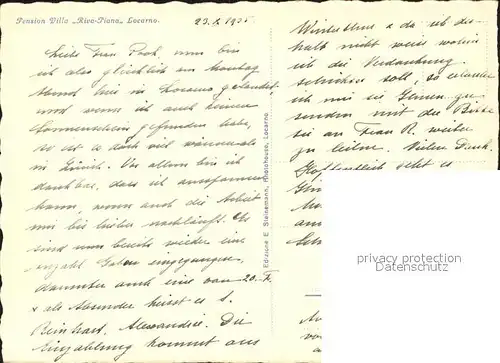 Pension Villa „Riva-Piana“ Locarno.
23.2.1935
Liebe Frau Park, nun bin
ich also glücklich am Montag
Abend hier in Locarno gelandet,
und wenn ich auch keinen
Sonnenschein gefunden habe,
so ist es doch viel wärmer als
in Zürich. Vor allem bin ich
dankbar, dass ich ausspannen
kann, wenn auch die Arbeit
mir bis hieher nachläuft. Es
sind nun bereits wieder eine
Anzahl Gaben eingegangen,
darunter auch eine von 20.- Fr.
& als Absender heisst es S.
Reinhart, Alexandrie. Die
Einzahlung kommt aus
Edizione E. Steinemann, Photohaus, Locarno
Winterthur & da ich des-
halb nicht weiss wohin
ich die Verdankung
schicken soll, so erlaube
ich mir sie Ihnen zu
senden mit der Bitte
sie an Frau R. weiter
zu leiten. Vielen Dank.
Hoffentlich geht es
privat
Datenschutz